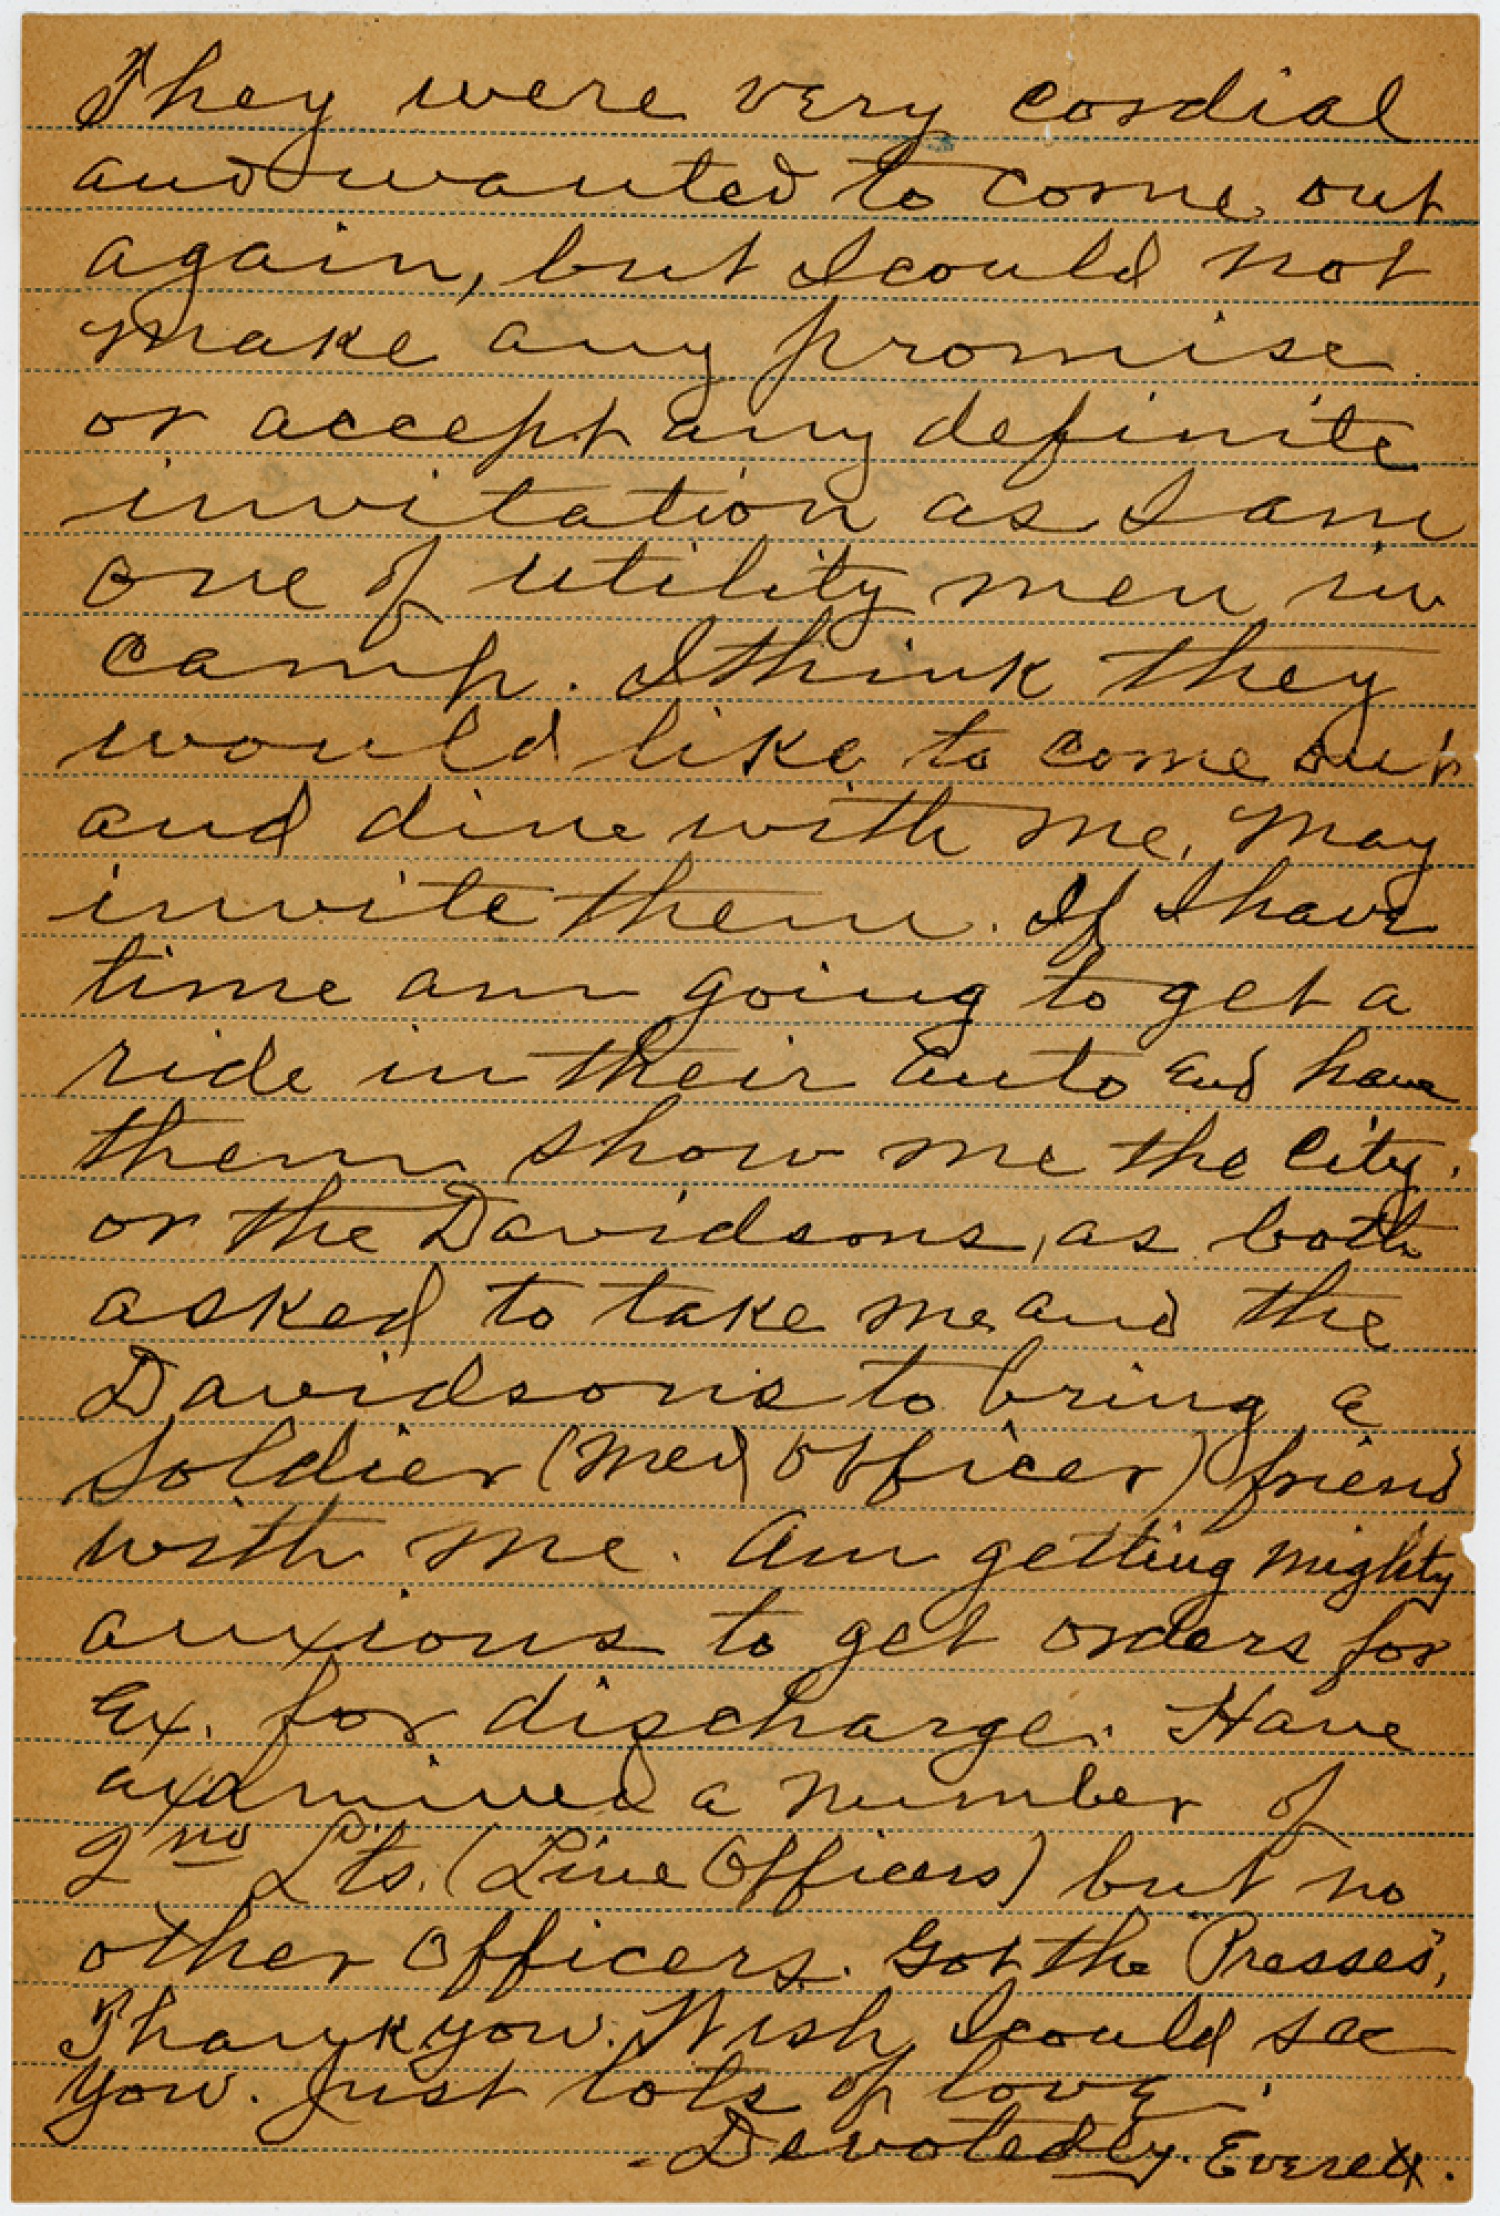 They were very cordial
and wanted to come out
again, but I could not
make any promise
or accept any definite
invitation as I am
one of utility men in
camp. I think they
would like to come out
and dine with me. May
invite them. If I have
time am going to get a
ride in their auto and have
them show me the city.
or the Davidsons, as both
asked to take me and the
Davidsons to bring a
soldier (Med Officer) friend
with me. Am getting mighty
anxious to get orders for
Ex. for discharge. Have
examined a number of
2nd Lts. (Line Officers) but no
other Officers. Got the "Presses",
Thank you. Wish I could see
you. Just lots of love.
Devotedly. Everett.